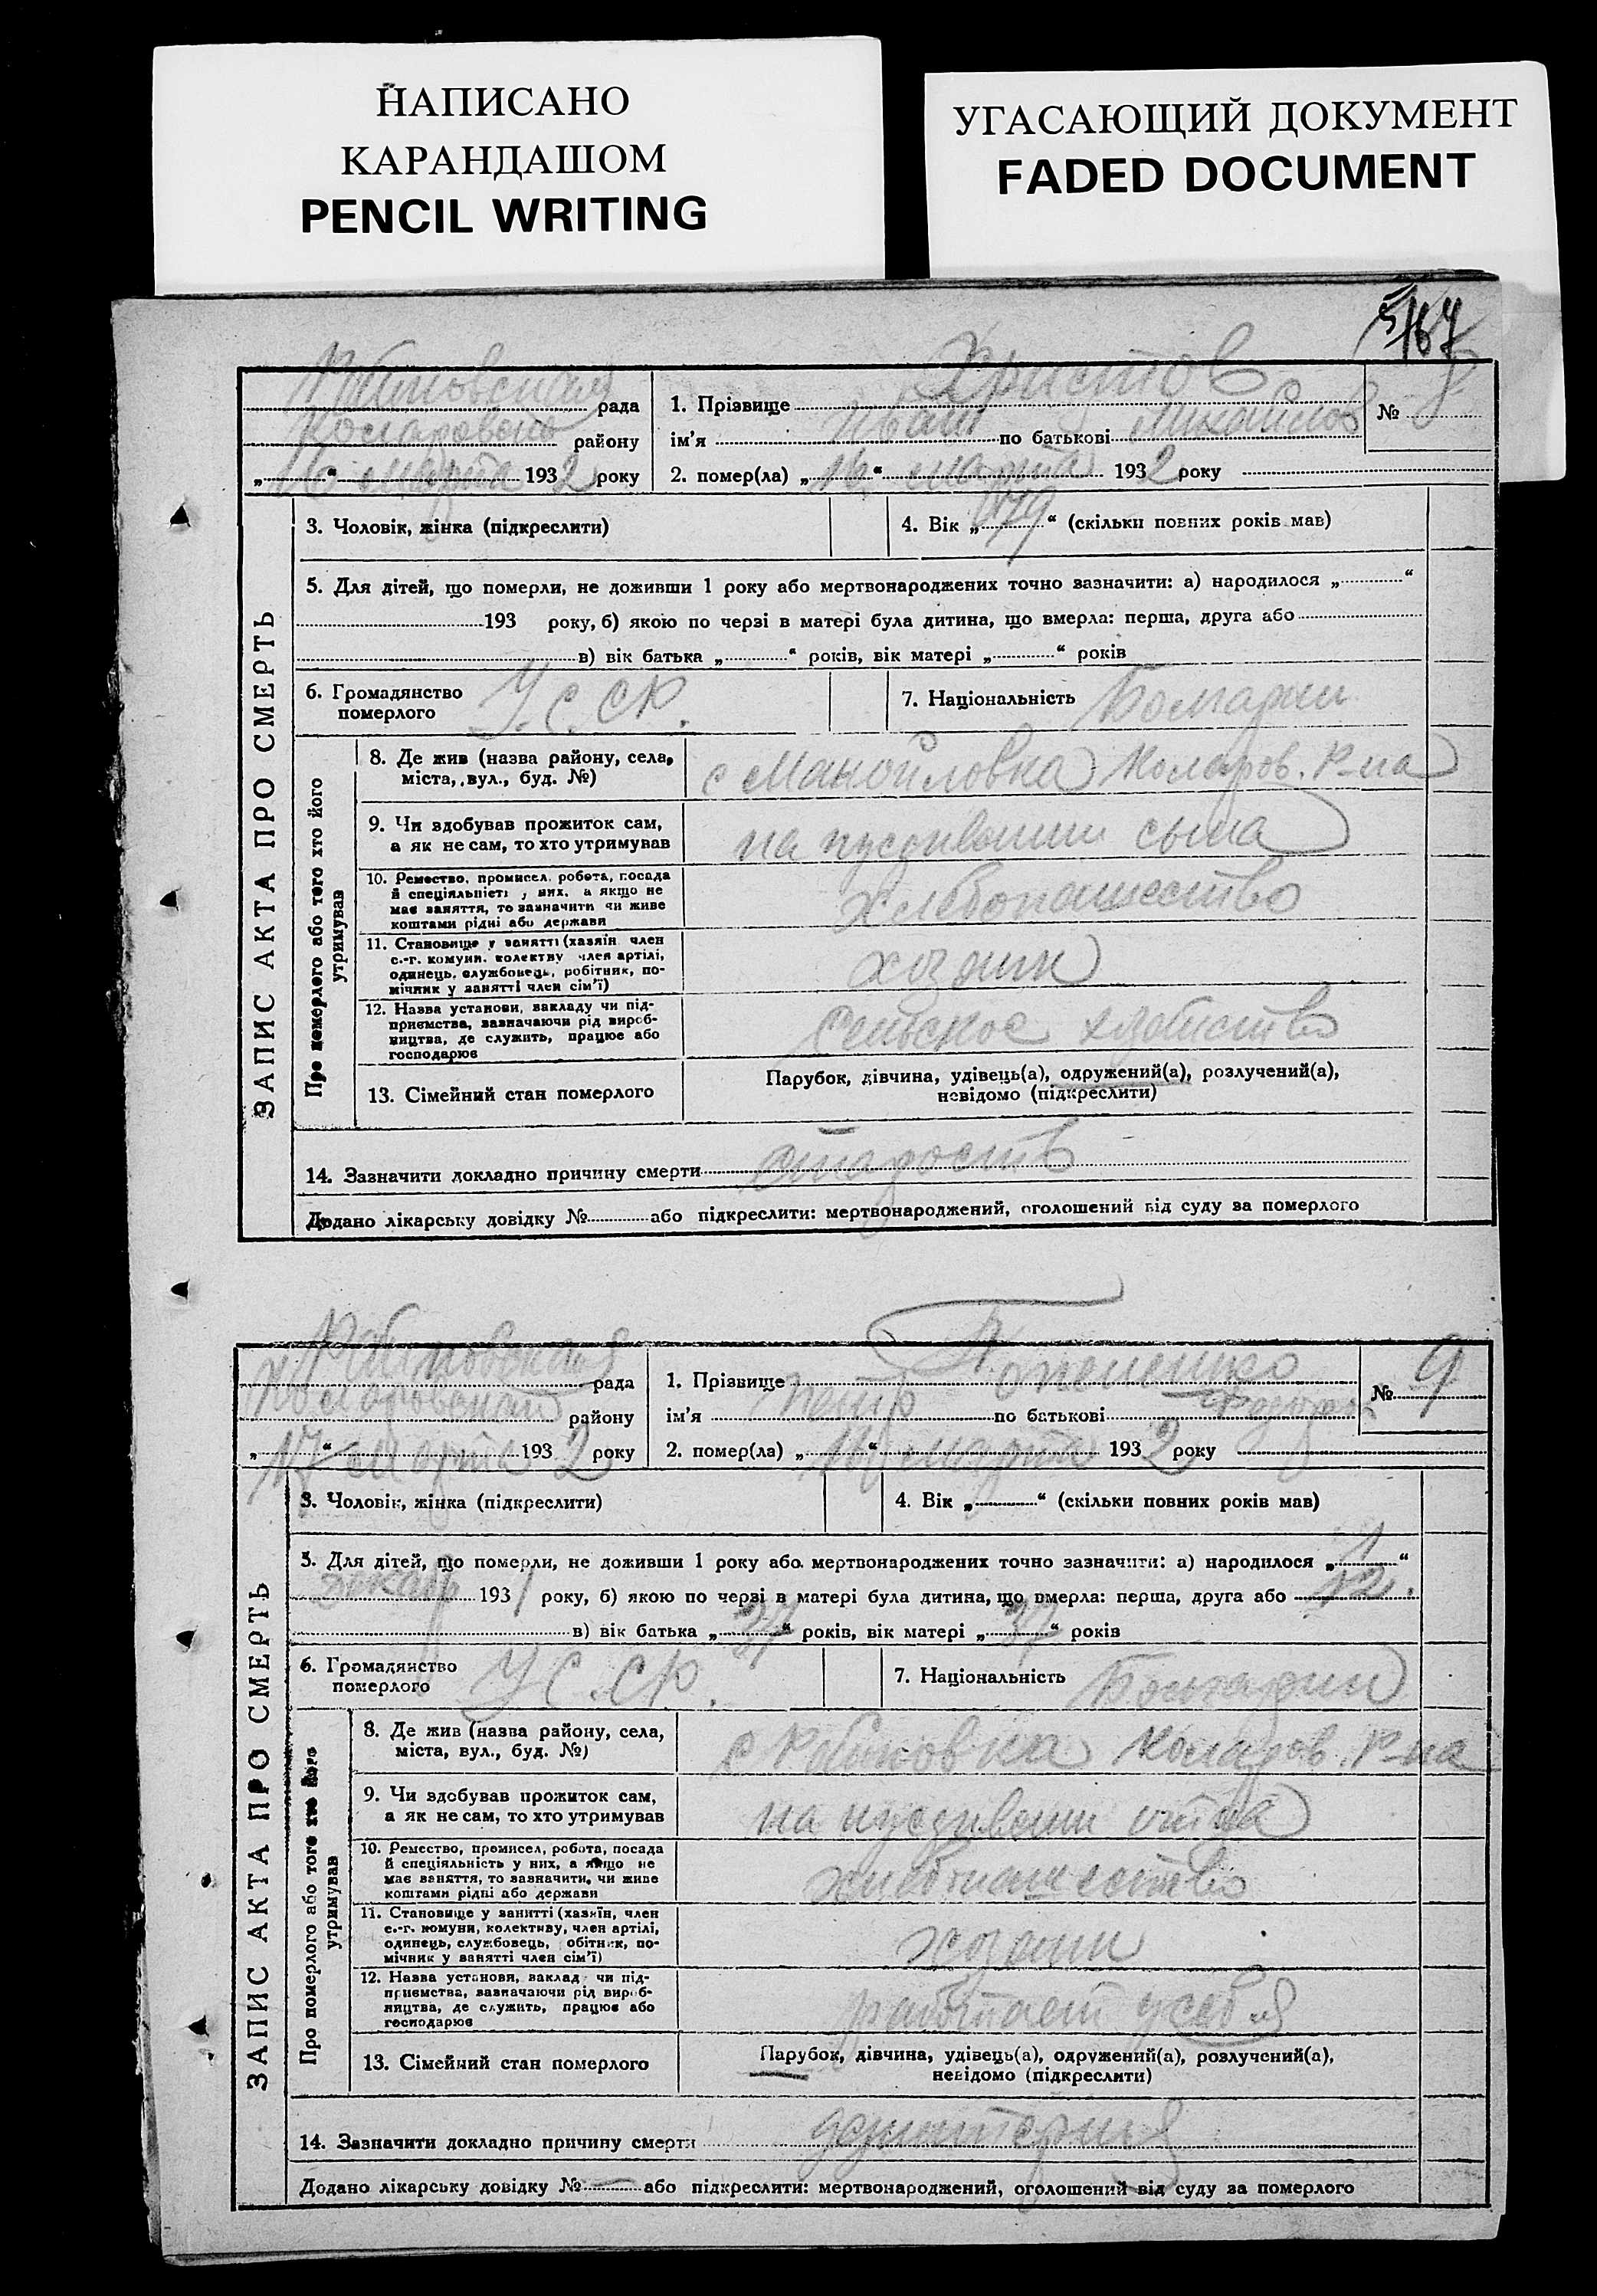 НАПИСАНО
КАРАНДАШОМ
PENCIL WRITING
УГАСАЮЩИЙ ДОКУМЕНТ
FADED DOCUMENT
рада
району
„16“ марта 1932 року
1. Прізвище Христов
ім’я Иван по батькові Михайлов
№ 8
2. помер(ла) „16“ марта 1932 року
ЗАПИС АКТА ПРО СМЕРТЬ
3. Чоловік, жінка (підкреслити)
4. Вік „79“ (скільки повних років мав)
5. Для дітей, що померли, не доживши 1 року або мертвонароджених точно зазначити: а) народилося „ “
193 року, б) якою по черзі в матері була дитина, що вмерла: перша, друга або
в) вік батька „ “ років, вік матері „ “ років
6. Громадянство
померлого
У.С.СР.
7. Національність Болгарин
Про померлого або того хто його
утримував
8. Де жив (назва району, села,
міста, вул., буд. №)
с Манойловка Коларов. Р-на
9. Чи здобував прожиток сам,
а як не сам, то хто утримував
на сына
10. Ремество, промисел, робота, посада
й спеціяльність у них, а якщо не
має заняття, то зазначити чи живе
коштами рідні або держави
хлебопашество
11. Становище у занятті (хазяїн член
с.-г. комуни, колективу член артілі,
одинець, службовець, робітник, по-
мічник у занятті член сім’ї)
хозяин
12. Назва установи, закладу чи під-
приємства, зазначаючи рід вироб-
ництва, де служить, працює або
господарює
Сельское хозяйство
13. Сімейний стан померлого
Парубок, дівчина, удівець(а), одружений(а), розлучений(а),
невідомо (підкреслити)
14. Зазначити докладно причину смерти старость
Додано лікарську довідку № або підкреслити: мертвонароджений, оголошений від суду за померлого
рада
району
„17“ марта 1932 року
1. Прізвище
ім’я Петр по батькові
№ 9
2. помер(ла) „16“ марта 1932 року
ЗАПИС АКТА ПРО СМЕРТЬ
3. Чоловік, жінка (підкреслити)
4. Вік „ “ (скільки повних років мав)
5. Для дітей, що померли, не доживши 1 року або мертвонароджених точно зазначити: а) народилося „1“
декабр 1931 року, б) якою по черзі в матері була дитина, що вмерла: перша, друга або 12.
в) вік батька „37“ років, вік матері „37“ років
6. Громадянство
померлого
УС.СР.
7. Національність Болгарин
Про померлого або того хто його
утримував
8. Де жив (назва району, села,
міста, вул., буд. №)
с Коларов. Р-на
9. Чи здобував прожиток сам,
а як не сам, то хто утримував
на отца
10. Ремество, промисел, робота, посада
й спеціяльність у них, а якщо не
має заняття, то зазначити, чи живе
коштами рідні або держави
хлебопашество
11. Становище у занятті (хазяїн, член
с.-г. комуни, колективу, член артілі,
одинець, службовець, обітник, по-
мічник у занятті член сім’ї)
хозяин
12. Назва установи, заклад чи під-
приємства, зазначаючи рід вироб-
ництва, де служить, працює або
господарює
работает у себя
13. Сімейний стан померлого
Парубок, дівчина, удівець(а), одружений(а), розлучений(а),
невідомо (підкреслити)
14. Зазначити докладно причину смерти
Додано лікарську довідку № — або підкреслити: мертвонароджений, оголошений від суду за померлого